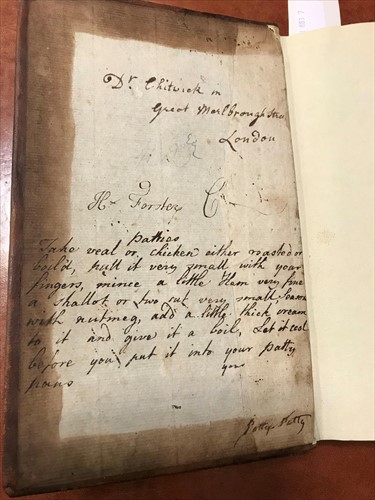 Dr. Chitwick in
Great Marlbrough Street
London
H. Forster
patties
Take veal or chicken either roasted or
boild, pull it very small with your
fingers, mince a little Ham very fine
a shallot or two cut very small, season
with nutmeg, add a little thick cream
to it and give it a boil, Let it cool
before you put it into your patty
pans
Patty Patty